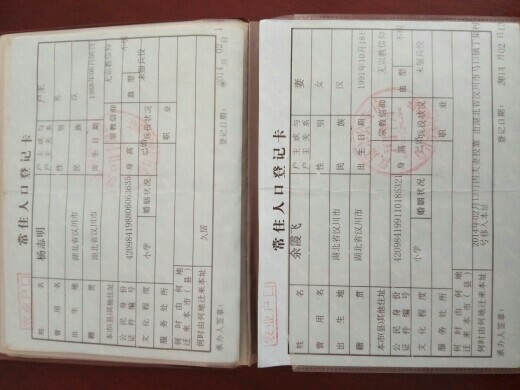 常住人口登记卡
姓名 杨志明 户主或与户主关系 户主
曾用名 性别 男
出生地 湖北省汉川市 民族 汉
籍贯 湖北省汉川市 出生日期
本市(县)其他住址 宗教信仰 无宗教信仰
公民身份证件编号 身高 血型 不明
文化程度 小学 婚姻状况 已婚 兵役状况 未服兵役
服务处所 职业
何时由何地迁来本市(县) 久居
何时由何地迁来本址
承办人签章: 登记日期:
农业户口
常住人口登记卡
姓名 余霞飞 户主或与户主关系 妻
曾用名 性别 女
出生地 湖北省汉川市 民族 汉
籍贯 湖北省汉川市 出生日期 1991年10月18日
本市(县)其他住址 宗教信仰 无宗教信仰
公民身份证件编号 420984199110188321 身高 血型 不明
文化程度 小学 婚姻状况 已婚 兵役状况 未服兵役
服务处所 职业
何时由何地迁来本市(县)
何时由何地迁来本址
承办人签章: 登记日期:
农业户口